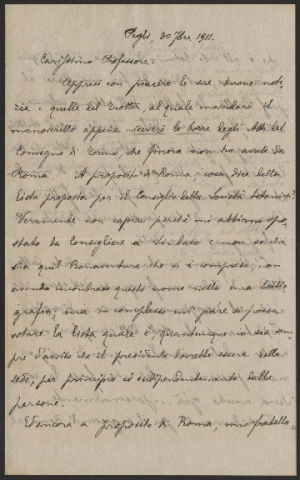 Pegli, 30 9bre 1911.
Carissimo Professore,
Appresi con piacere le sue buone noti-
zie e quelle del Trotter, al quale manderò il
manoscritto appena riceverò le bozze degli Atti del
Convegno di Torino, che finora non ho avute da
Roma. A proposito di Roma, cosa dice della
lista proposta per il Consiglio della Società botanica?
Veramente non capisco perchè mi abbiano spo-
stato da Consigliere a Sindaco e non so chi
sia quel Bonaventura che vi è compreso, non
avendo incontrato questo nome nella mia Biblio-
grafia; ma in complesso mi pare si possa
votare la lista quale è quantunque io sia sem-
pre d'avviso che il presidente dovrebbe essere della
sede, per principio ed indipendentemente dalle
persone.
Ed ancora a proposito di Roma, mio fratello